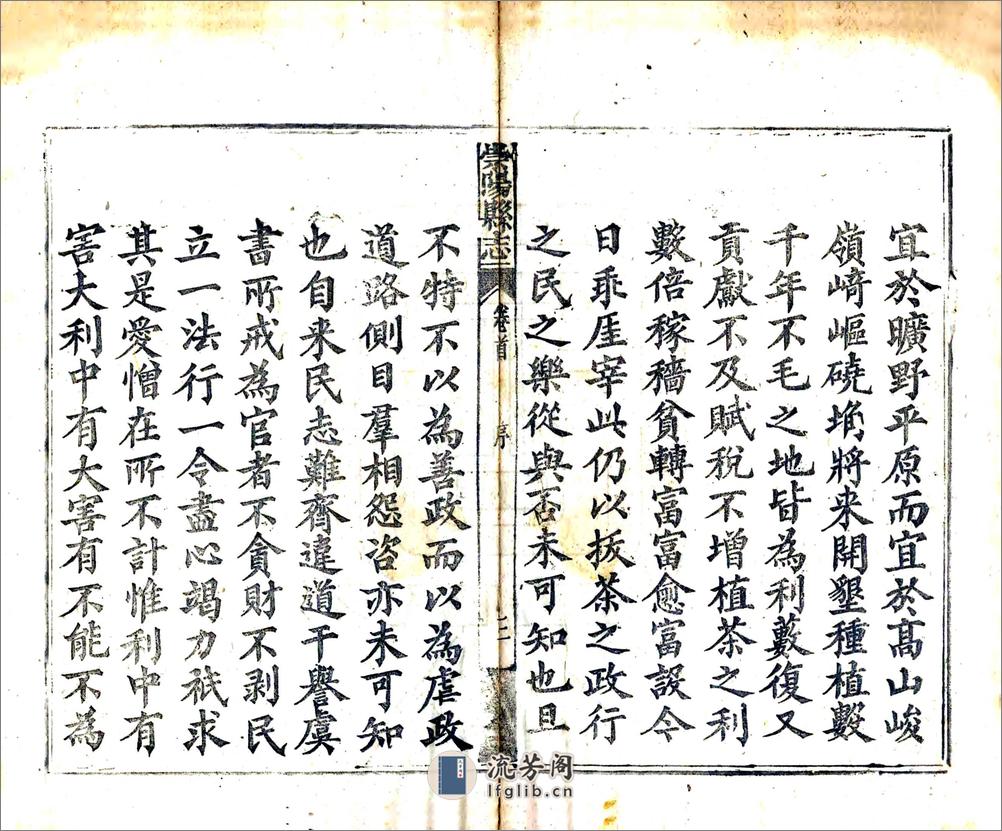 宜於曠野平原而宜於髙山峻
嶺﨑嶇磽埆將来開墾種植數
千年不毛之地皆為利藪復又
貢獻不及賦稅不增植茶之利
數倍稼穡貧轉富富愈富設今
日乖厓宰此仍以拔茶之政行
之民之樂從與否未可知也且
崇陽縣志
卷首
序
二
不特不以為善政而以為虐政
道路側目羣相怨咨亦未可知
也自来民志難齊違道干譽虞
書所戒為官者不貪財不剥民
立一法行一令盡心竭力祇求
其是愛憎在所不計惟利中有
害大利中有大害有不能不為
流芳阁
lfglib.cn